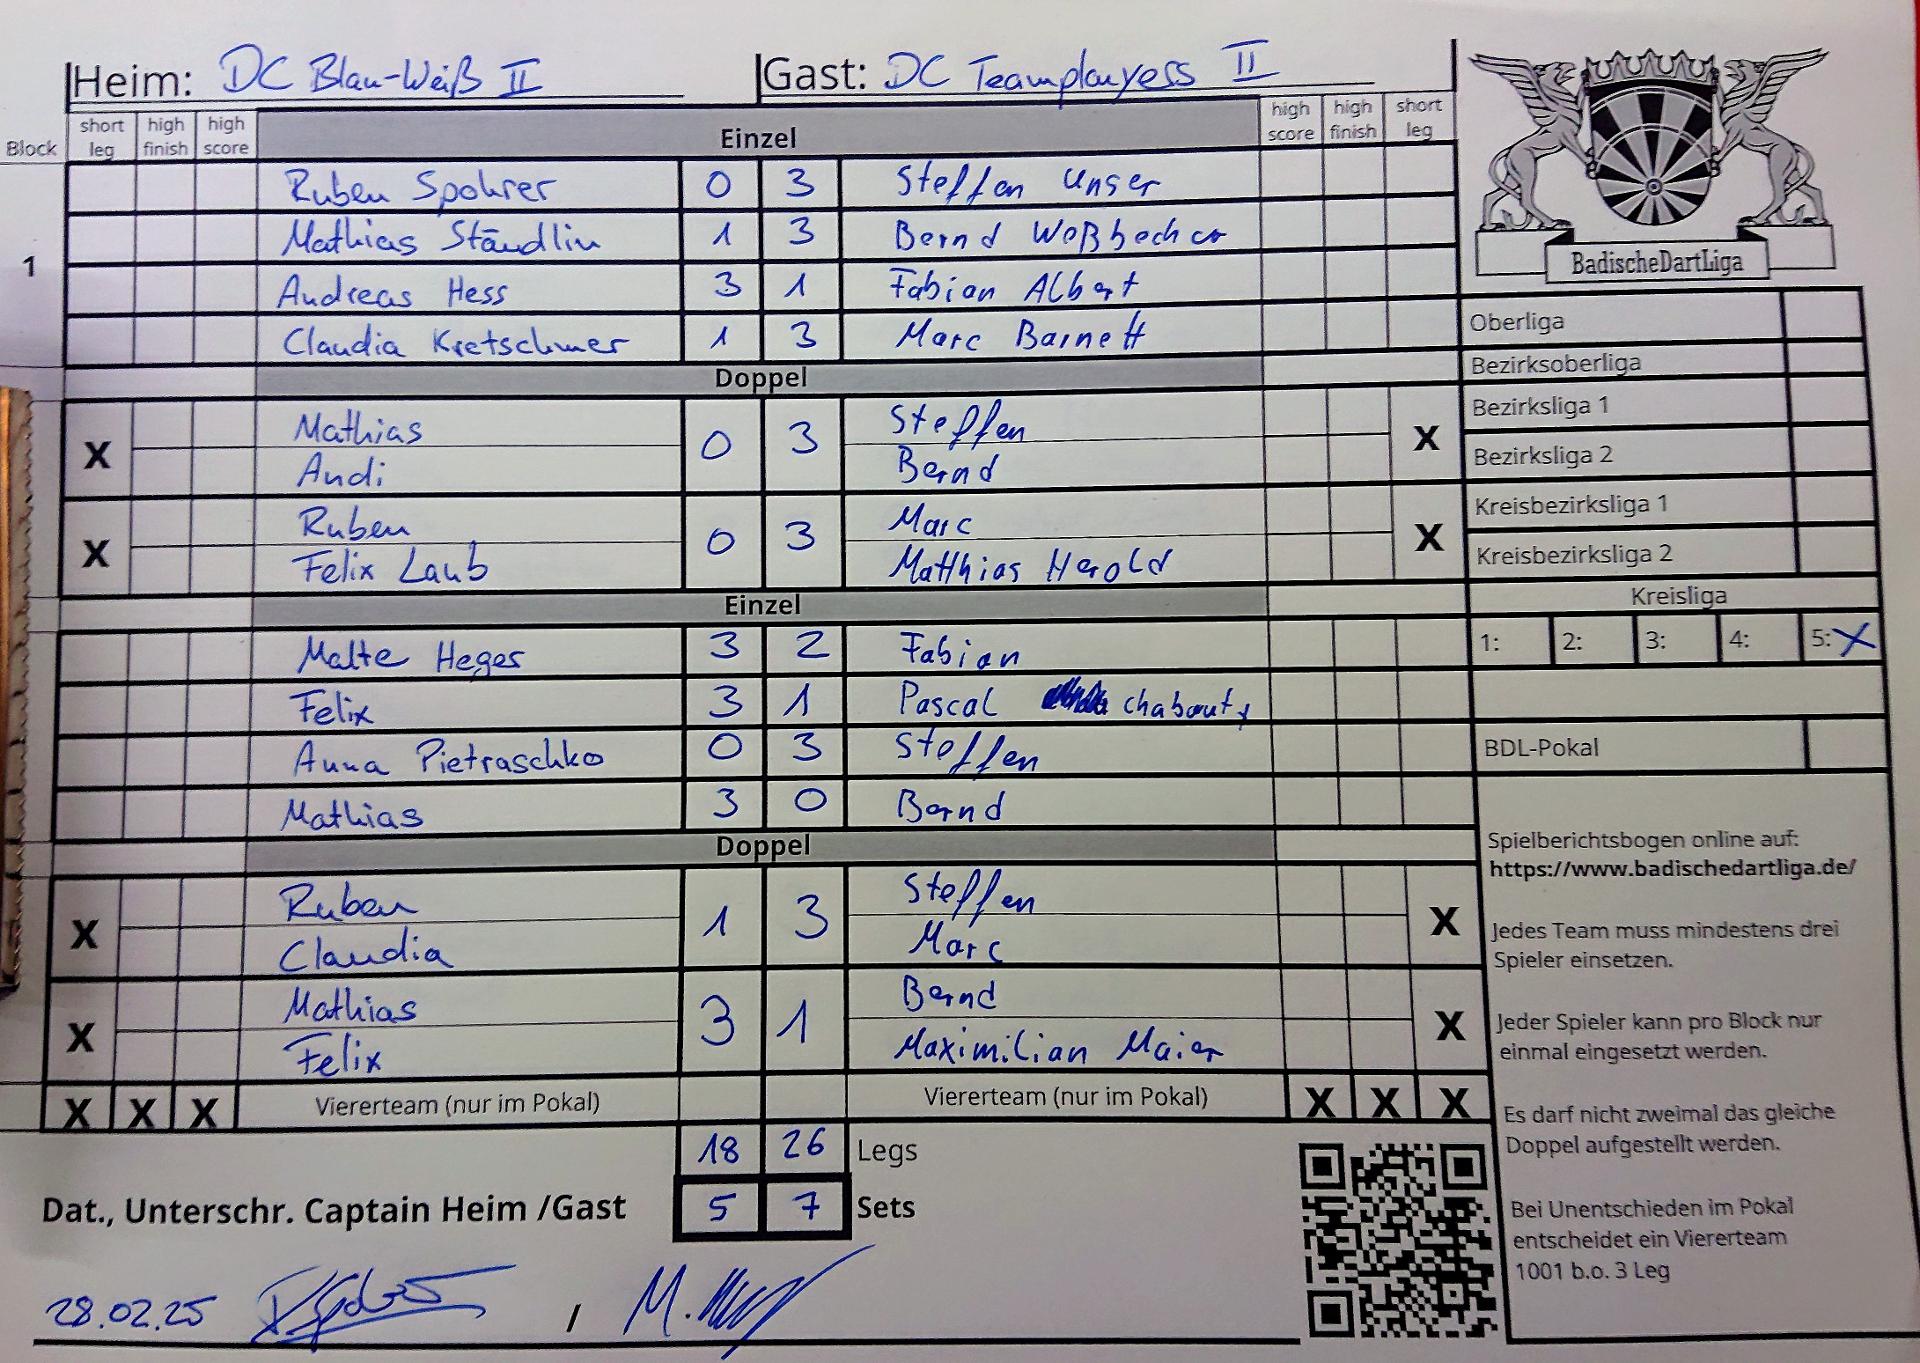 Heim: DC Blau-Weiß II Gast: DC Teamplayers II
Block short leg high finish high score Einzel high score high finish short leg
Ruben Spohrer 0 3 Steffen Unser
Mathias Ständlin 1 3 Bernd Weßbecher
1
Andreas Hess 3 1 Fabian Albert
Claudia Kretschmer 1 3 Marc Barnett
Doppel
Mathias Steffen
X 0 3 X
Andi Bernd
Ruben Marc
X 0 3 X
Felix Laub Matthias Herold
Einzel
Malte Heger 3 2 Fabian
Felix 3 1 Pascal chabouty
Anna Pietraschko 0 3 Steffen
Mathias 3 0 Bernd
Doppel
Ruben Steffen
X 1 3 X
Claudia Marc
Mathias Bernd
X 3 1 X
Felix Maximilian Maier
X X X Viererteam (nur im Pokal) Viererteam (nur im Pokal) X X X
18 26 Legs
Dat., Unterschr. Captain Heim /Gast 5 7 Sets
28.02.25 / M.
BadischeDartLiga
Oberliga
Bezirksoberliga
Bezirksliga 1
Bezirksliga 2
Kreisbezirksliga 1
Kreisbezirksliga 2
Kreisliga
1: 2: 3: 4: 5: X
BDL-Pokal
Spielberichtsbogen online auf:
https://www.badischedartliga.de/
Jedes Team muss mindestens drei
Spieler einsetzen.
Jeder Spieler kann pro Block nur
einmal eingesetzt werden.
Es darf nicht zweimal das gleiche
Doppel aufgestellt werden.
Bei Unentschieden im Pokal
entscheidet ein Viererteam
1001 b.o. 3 Leg